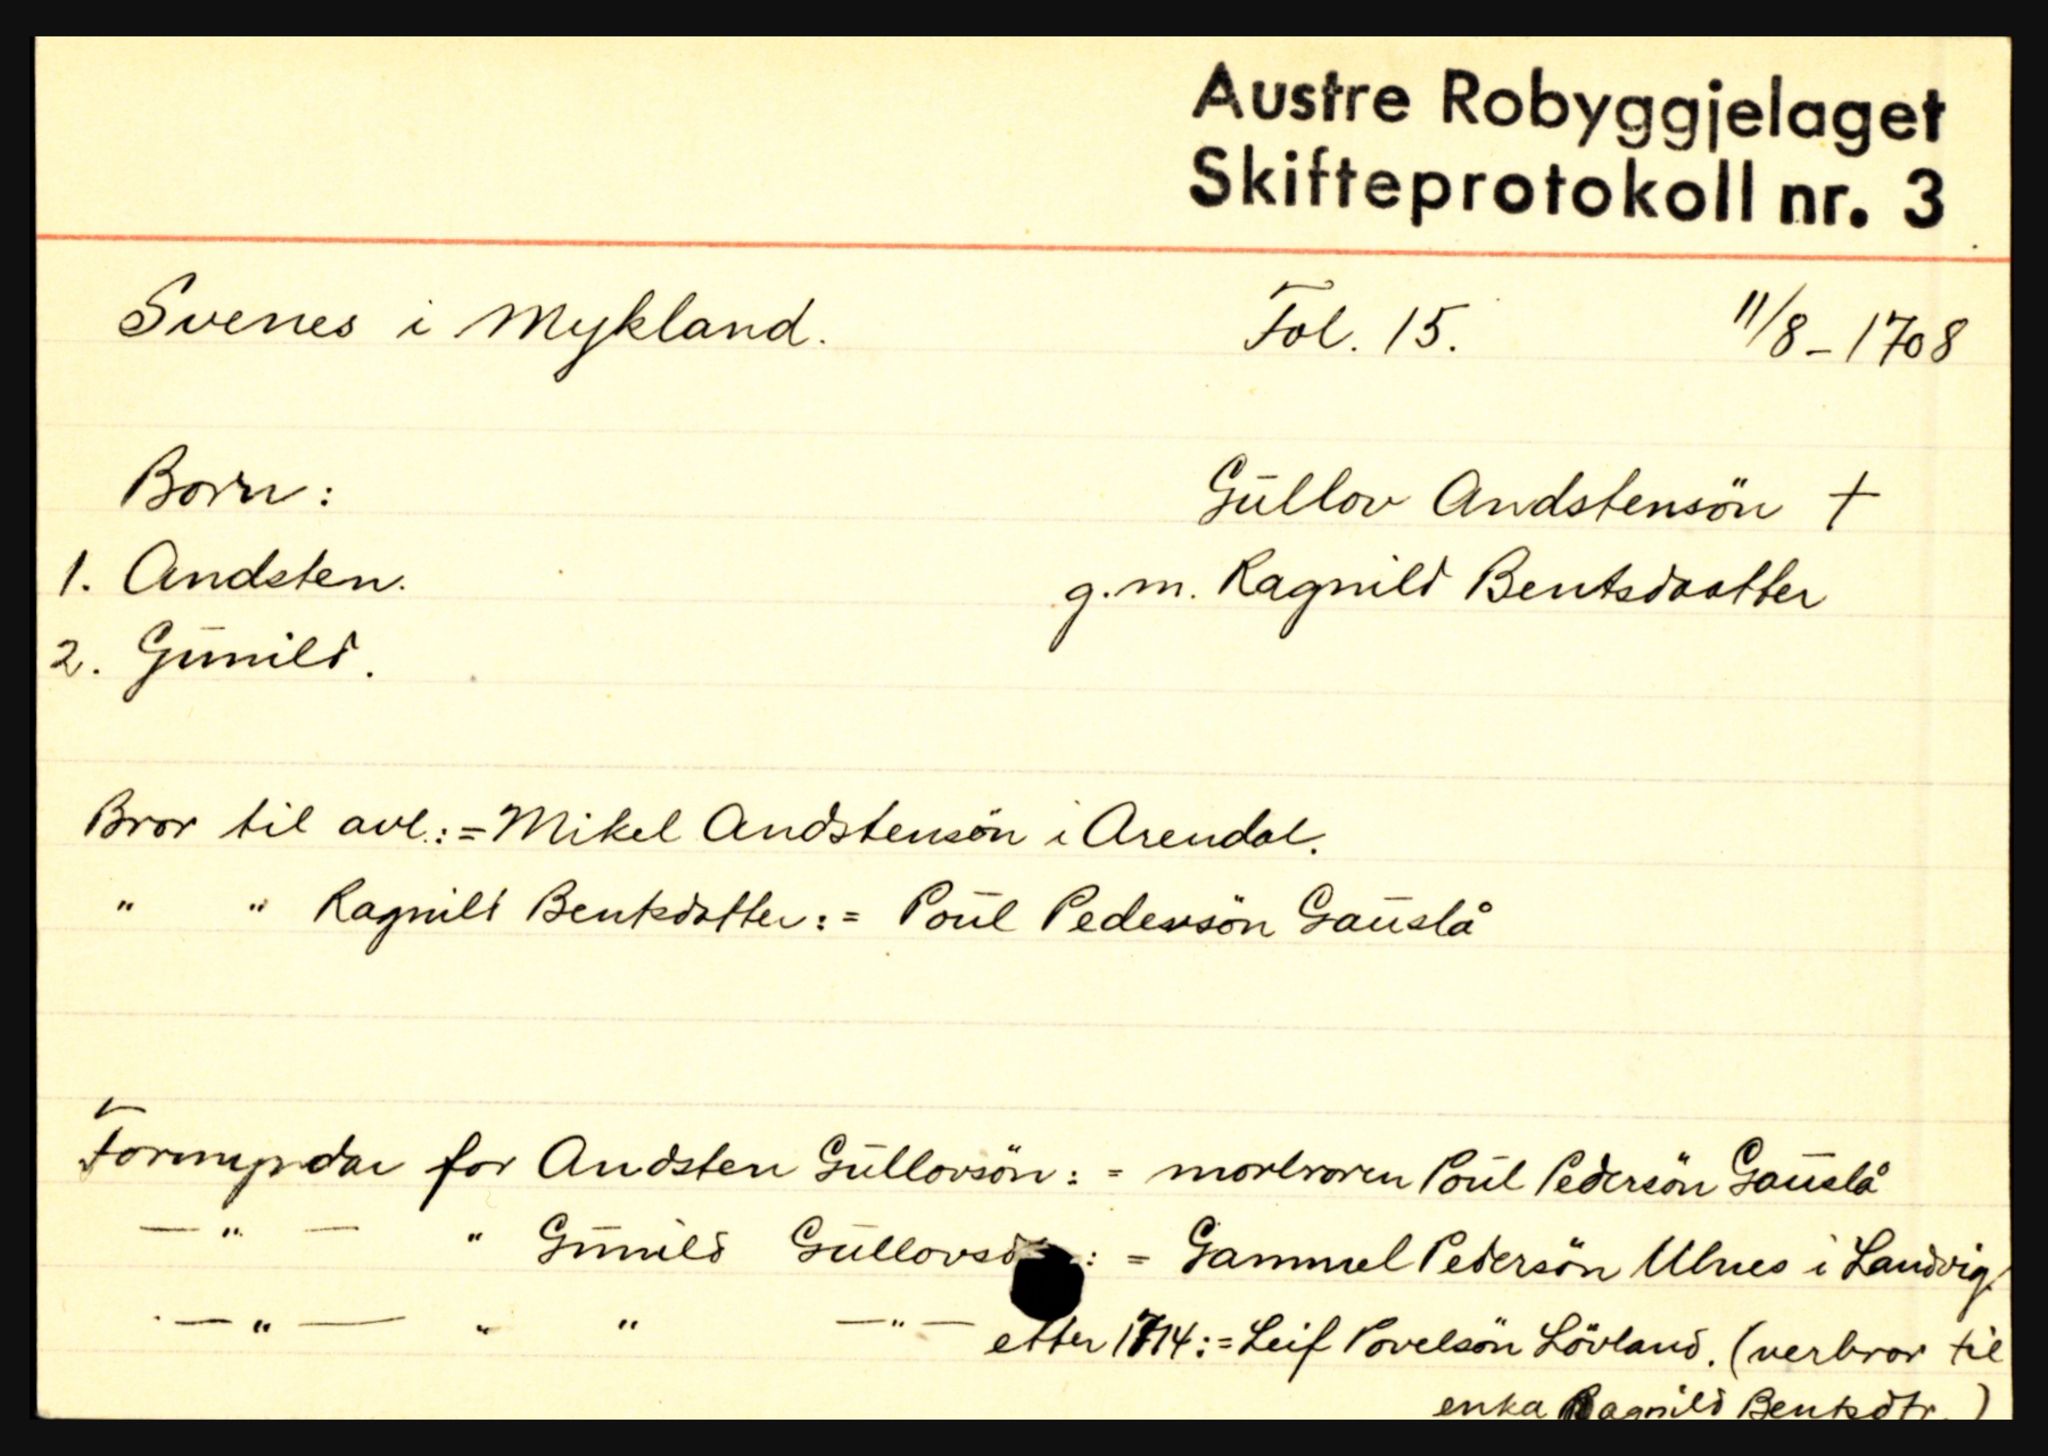 Austre Robyggjelaget
Skifteprotokoll nr. 3
Svenes i Mykland. Fol. 15. 11/8-1708
Born: Gūllov Andstensön +
1. Andsten. g.m. Ragnild Bentsdaatter
2. Gūnild.
Bror til avl.:= Mikel Andstensön i Arendal.
" " Ragnild Bentsdatter:= Poūl Pedersön Gaūslå
Formyndar for Andsten Gūllovsön:= morbroren Poūl Pedersön Gaūslå
—"— " Gūnild Gūllovsd : = Gammel Pedersön Ulnes i Landvig
—"— " " —"— etter 1714:= Leif Povelsön Lövland. (verbror til
enka Ragnild Bentsdtr.)